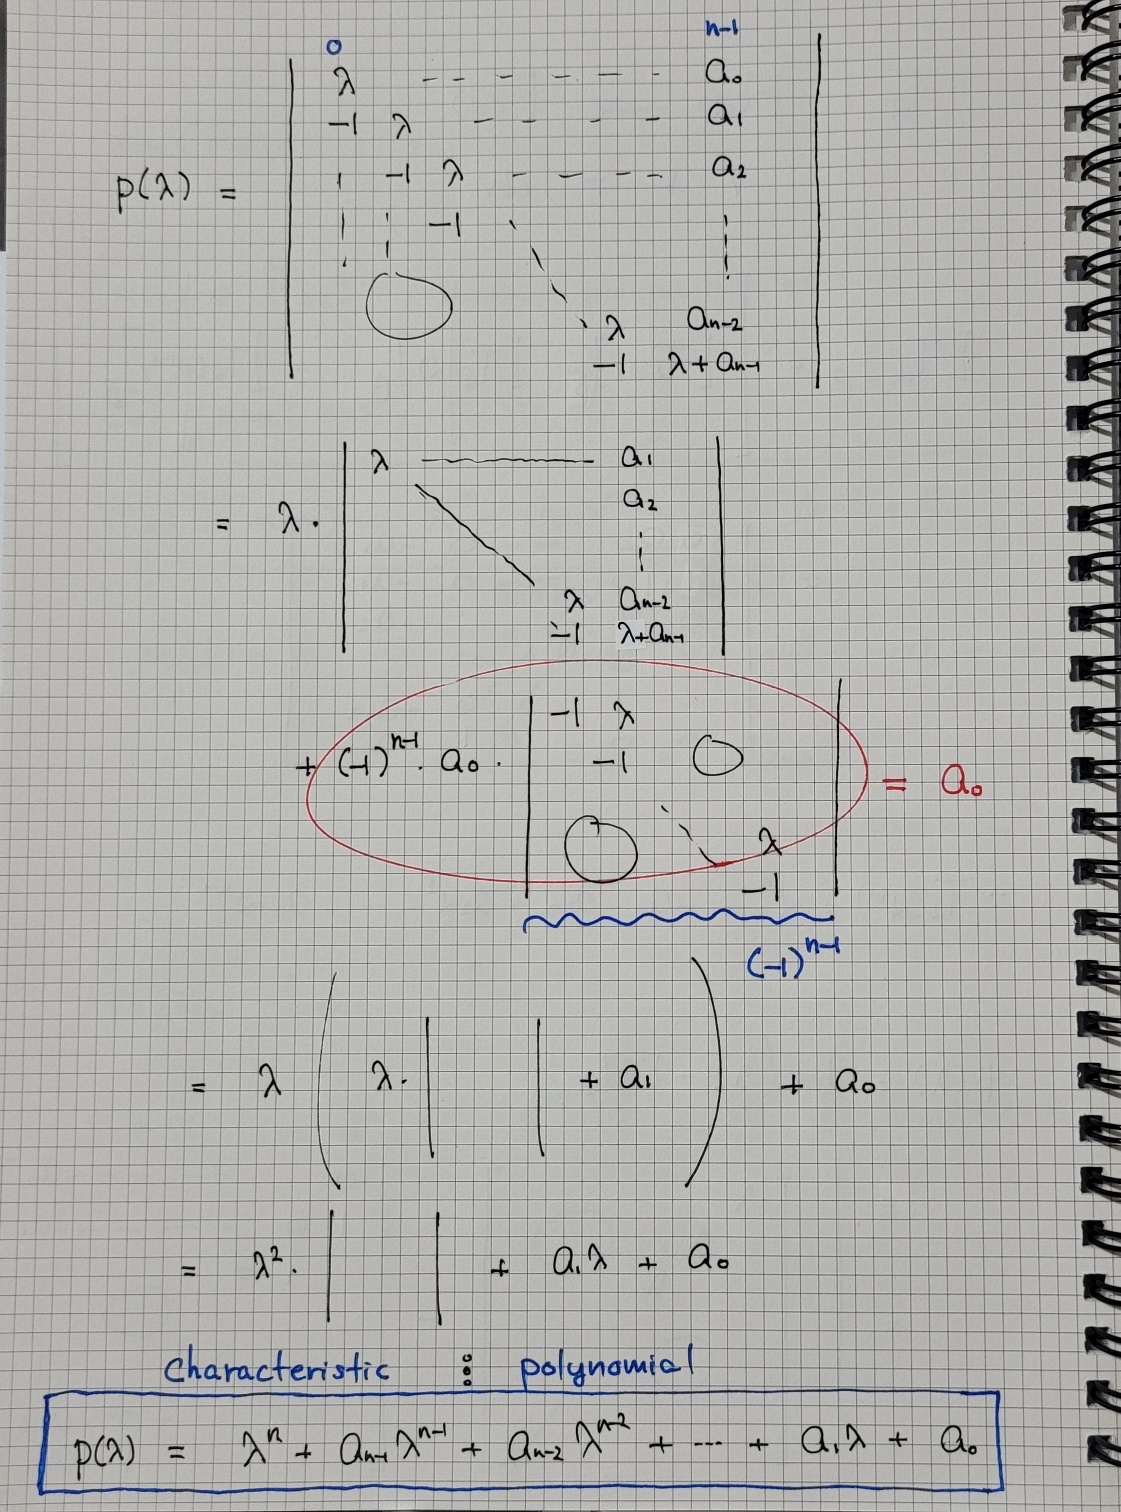 0 n-1
λ - - - - - - a₀
-1 λ - - - - a₁
p(λ) = -1 λ - - - - a₂
-1
λ aₙ₋₂
-1 λ + aₙ₋₁
λ ——— a₁
= λ · a₂
λ aₙ₋₂
-1 λ+aₙ₋₁
-1 λ
+ (-1)ⁿ⁻¹ · a₀ · -1 0 = a₀
0 λ
-1
(-1)ⁿ⁻¹
= λ ( λ · | | + a₁ ) + a₀
= λ² · | | + a₁λ + a₀
characteristic ⋮ polynomial
p(λ) = λⁿ + aₙ₋₁λⁿ⁻¹ + aₙ₋₂λⁿ⁻² + ... + a₁λ + a₀